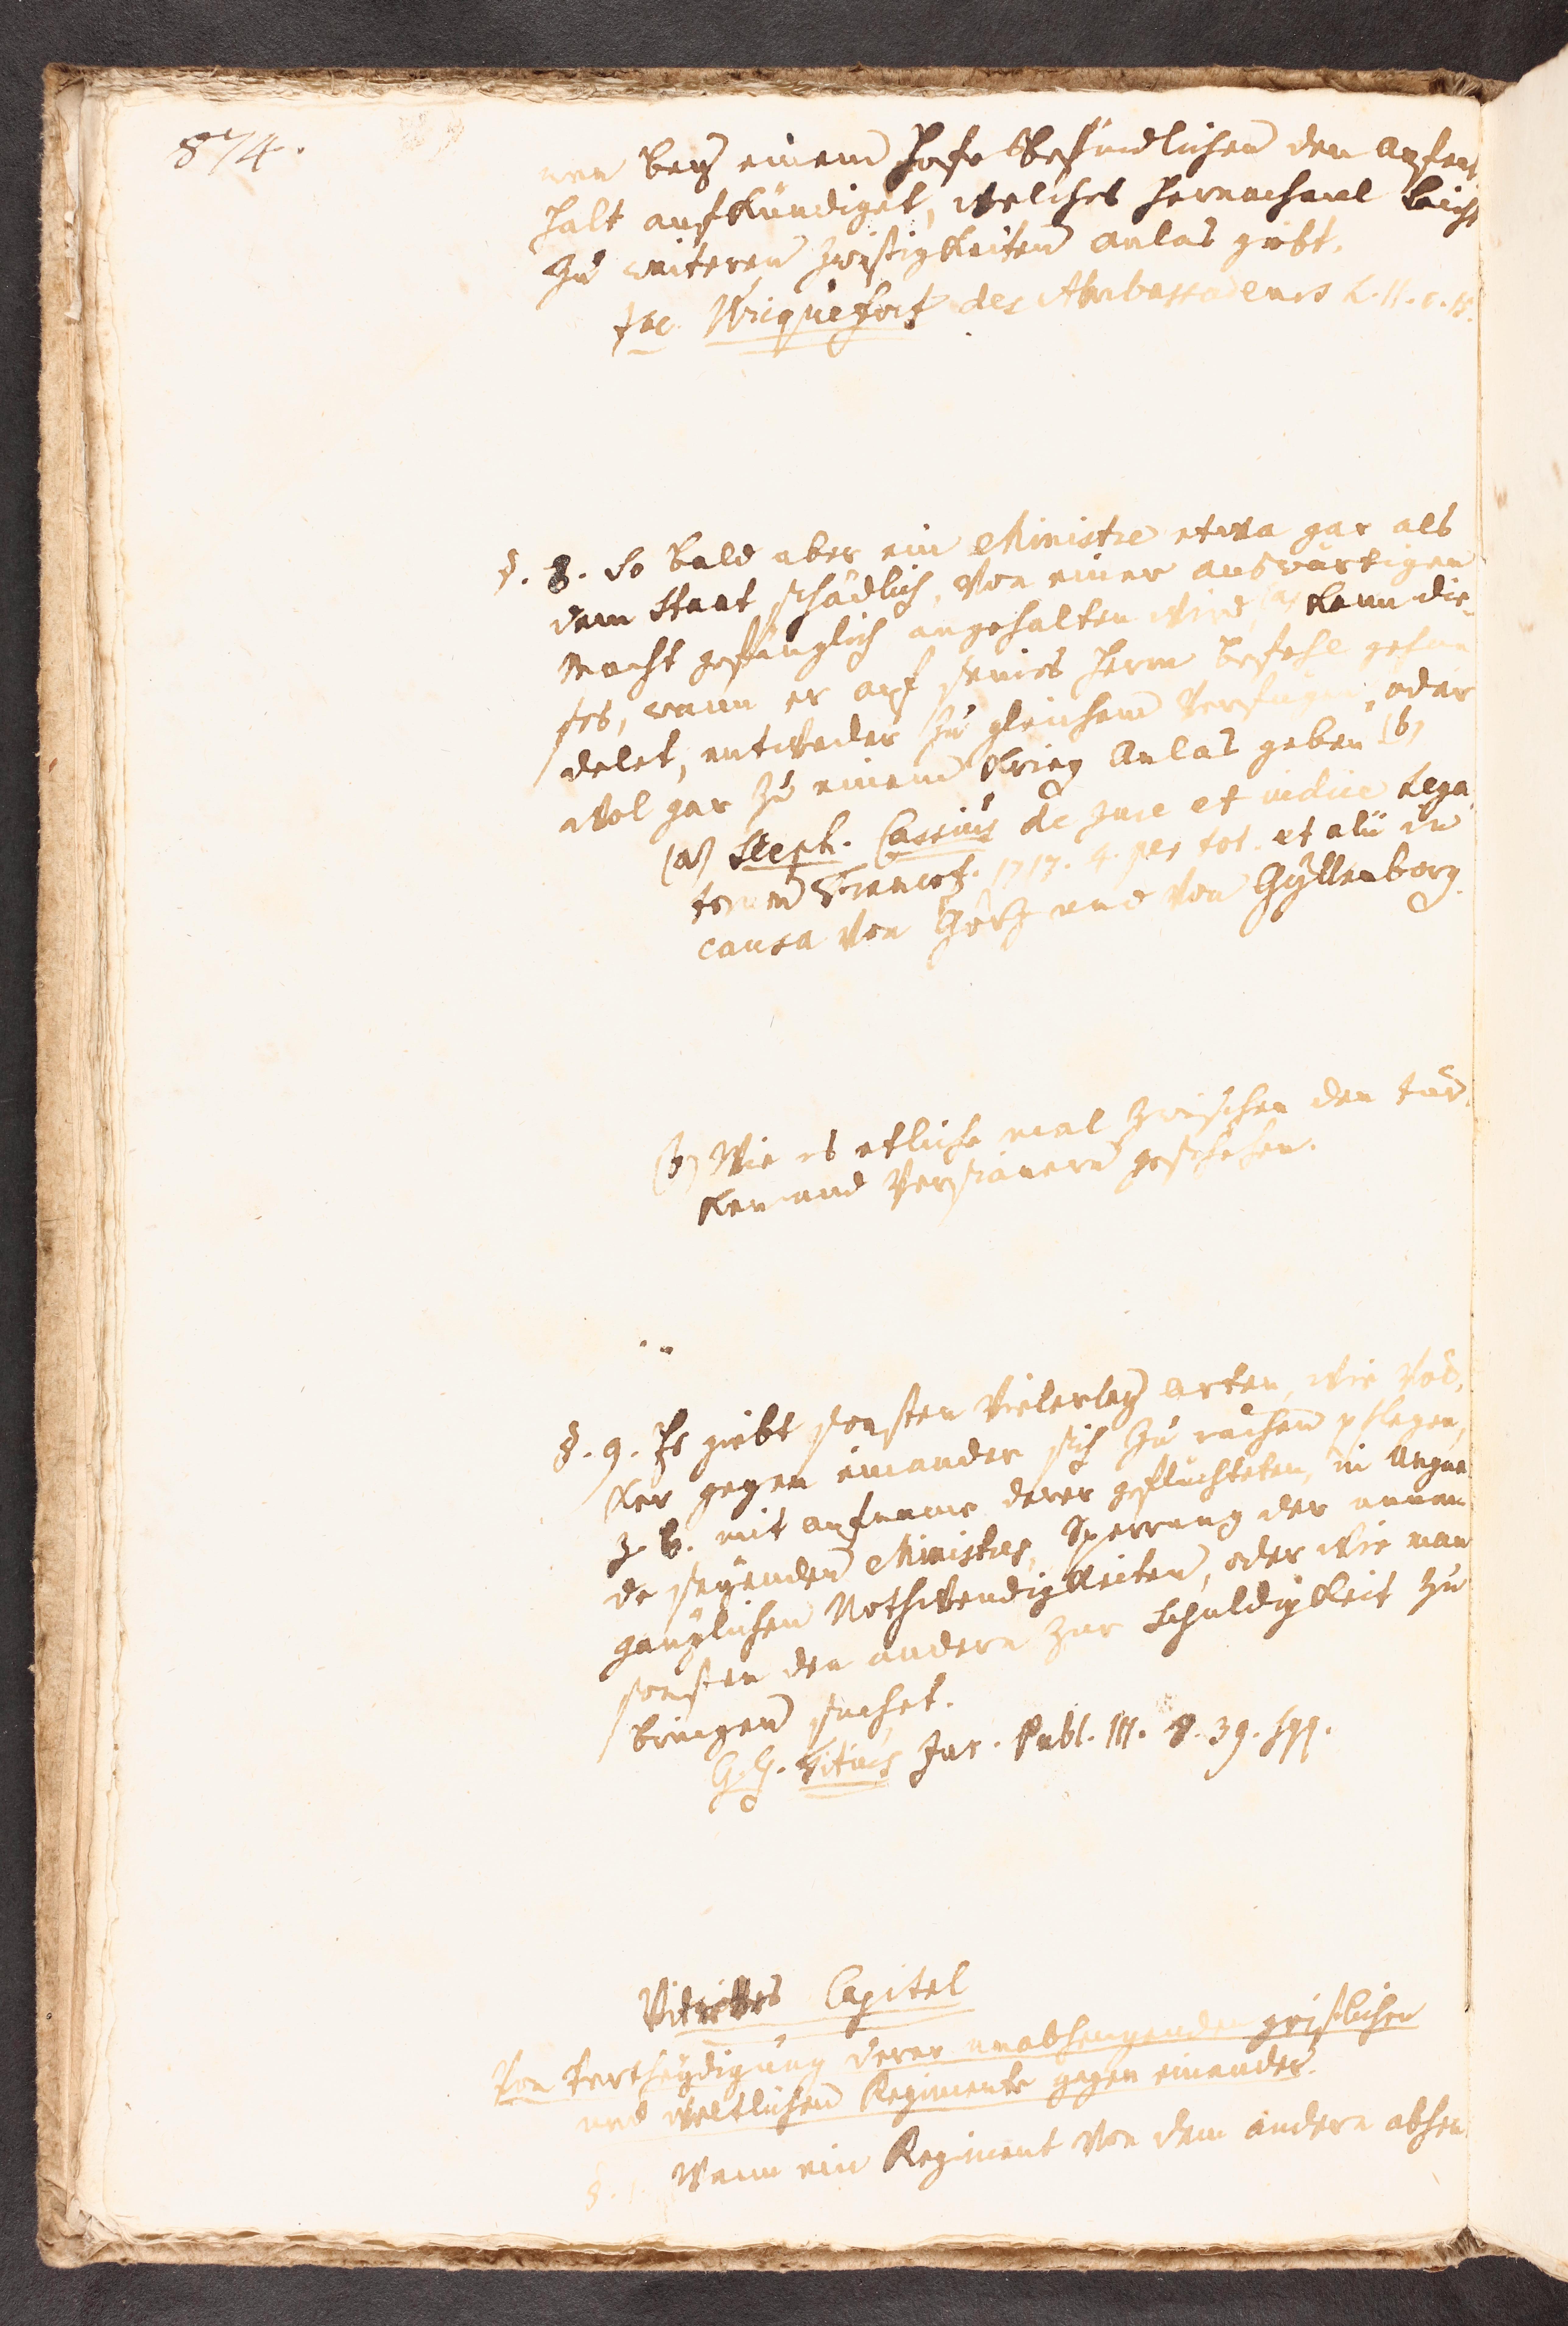 874.
nen bey einem Hofe befindlichen den Aufent
halt aufkündiget, welches hernachmal leicht
zu weiteren Zwistigkeiten anlas giebt.
Wicquefort des Ambassadeurs L. II. c. 15.
§. 8. So bald aber ein Ministre etwa gar als
dem Staat schädlich, von einer auswärtigen
Macht gefänglich angehalten wird, (a) kann die-
ses, wann er auf seines Herrn Befehl gehan
delet, entweder zu gleichem Verfügen, oder
wol gar zu einem Krieg Anlas geben (b)
(a) Steph. Cassius de jure et iudice Lega
torum Francof. 1717. 4. per tot. et alii in
causa von Görz und von Gyllenborg.
(b) Wie es etliche mal zwischen den Tür
ken und Persianern geschehen.
§. 9. Es giebt sonsten vielerley Arten, wie Völ
ker gegen einander sich zu rächen pflegen,
z. E. mit aufname derer geflüchteten, in Ungna
de seyenden Ministres, Sperrung der
gänglichen Nothwendigkeiten, oder wie man
sonsten den andern zur Schuldigkeit zu
bringen suchet.
G. G. Titius Jur. Publ. III. 8. 39. sqq.
Capitel
Von Vertheydigung derer unabhengenden geistlichen
und weltlichen Regimente gegen einander.
§. 1. Wenn ein Regiment von dem andern abhen